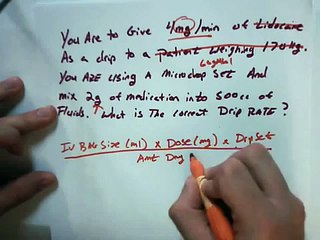 You Are to Give 4mg/min of Lidocaine
As a drip to a patient weighing 170 kg.
You ARE USING A Microdrop SET And
mix 2g of medication into 500cc of
Fluids. What is The correct Drip RATE?
IV BAG Size (ml) x Dose (mg) x Drip Set
Amt Drg